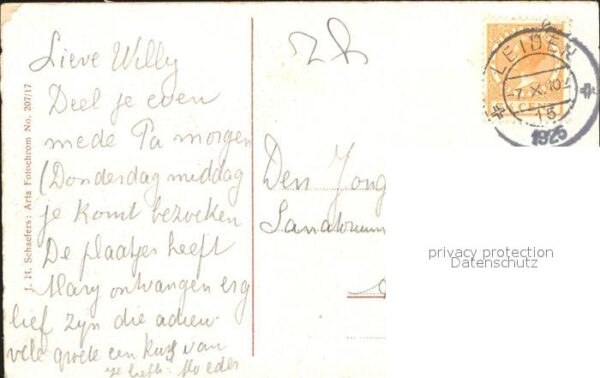 Lieve Willy
Deel je even
mede Pa morgen
(Donderdag middag
je komt bezoeken
De plaatjes heeft
Mary ontvangen erg
lief zijn die adieu
vele groete een kus van
je liefh. Moeder
J. H. Schaefers: Arta Fotochrom No. 207/17
Den Jong
Sanatorium
LEIDEN
-7.X.10
15
1925
CENT
privacy protection
Datenschutz